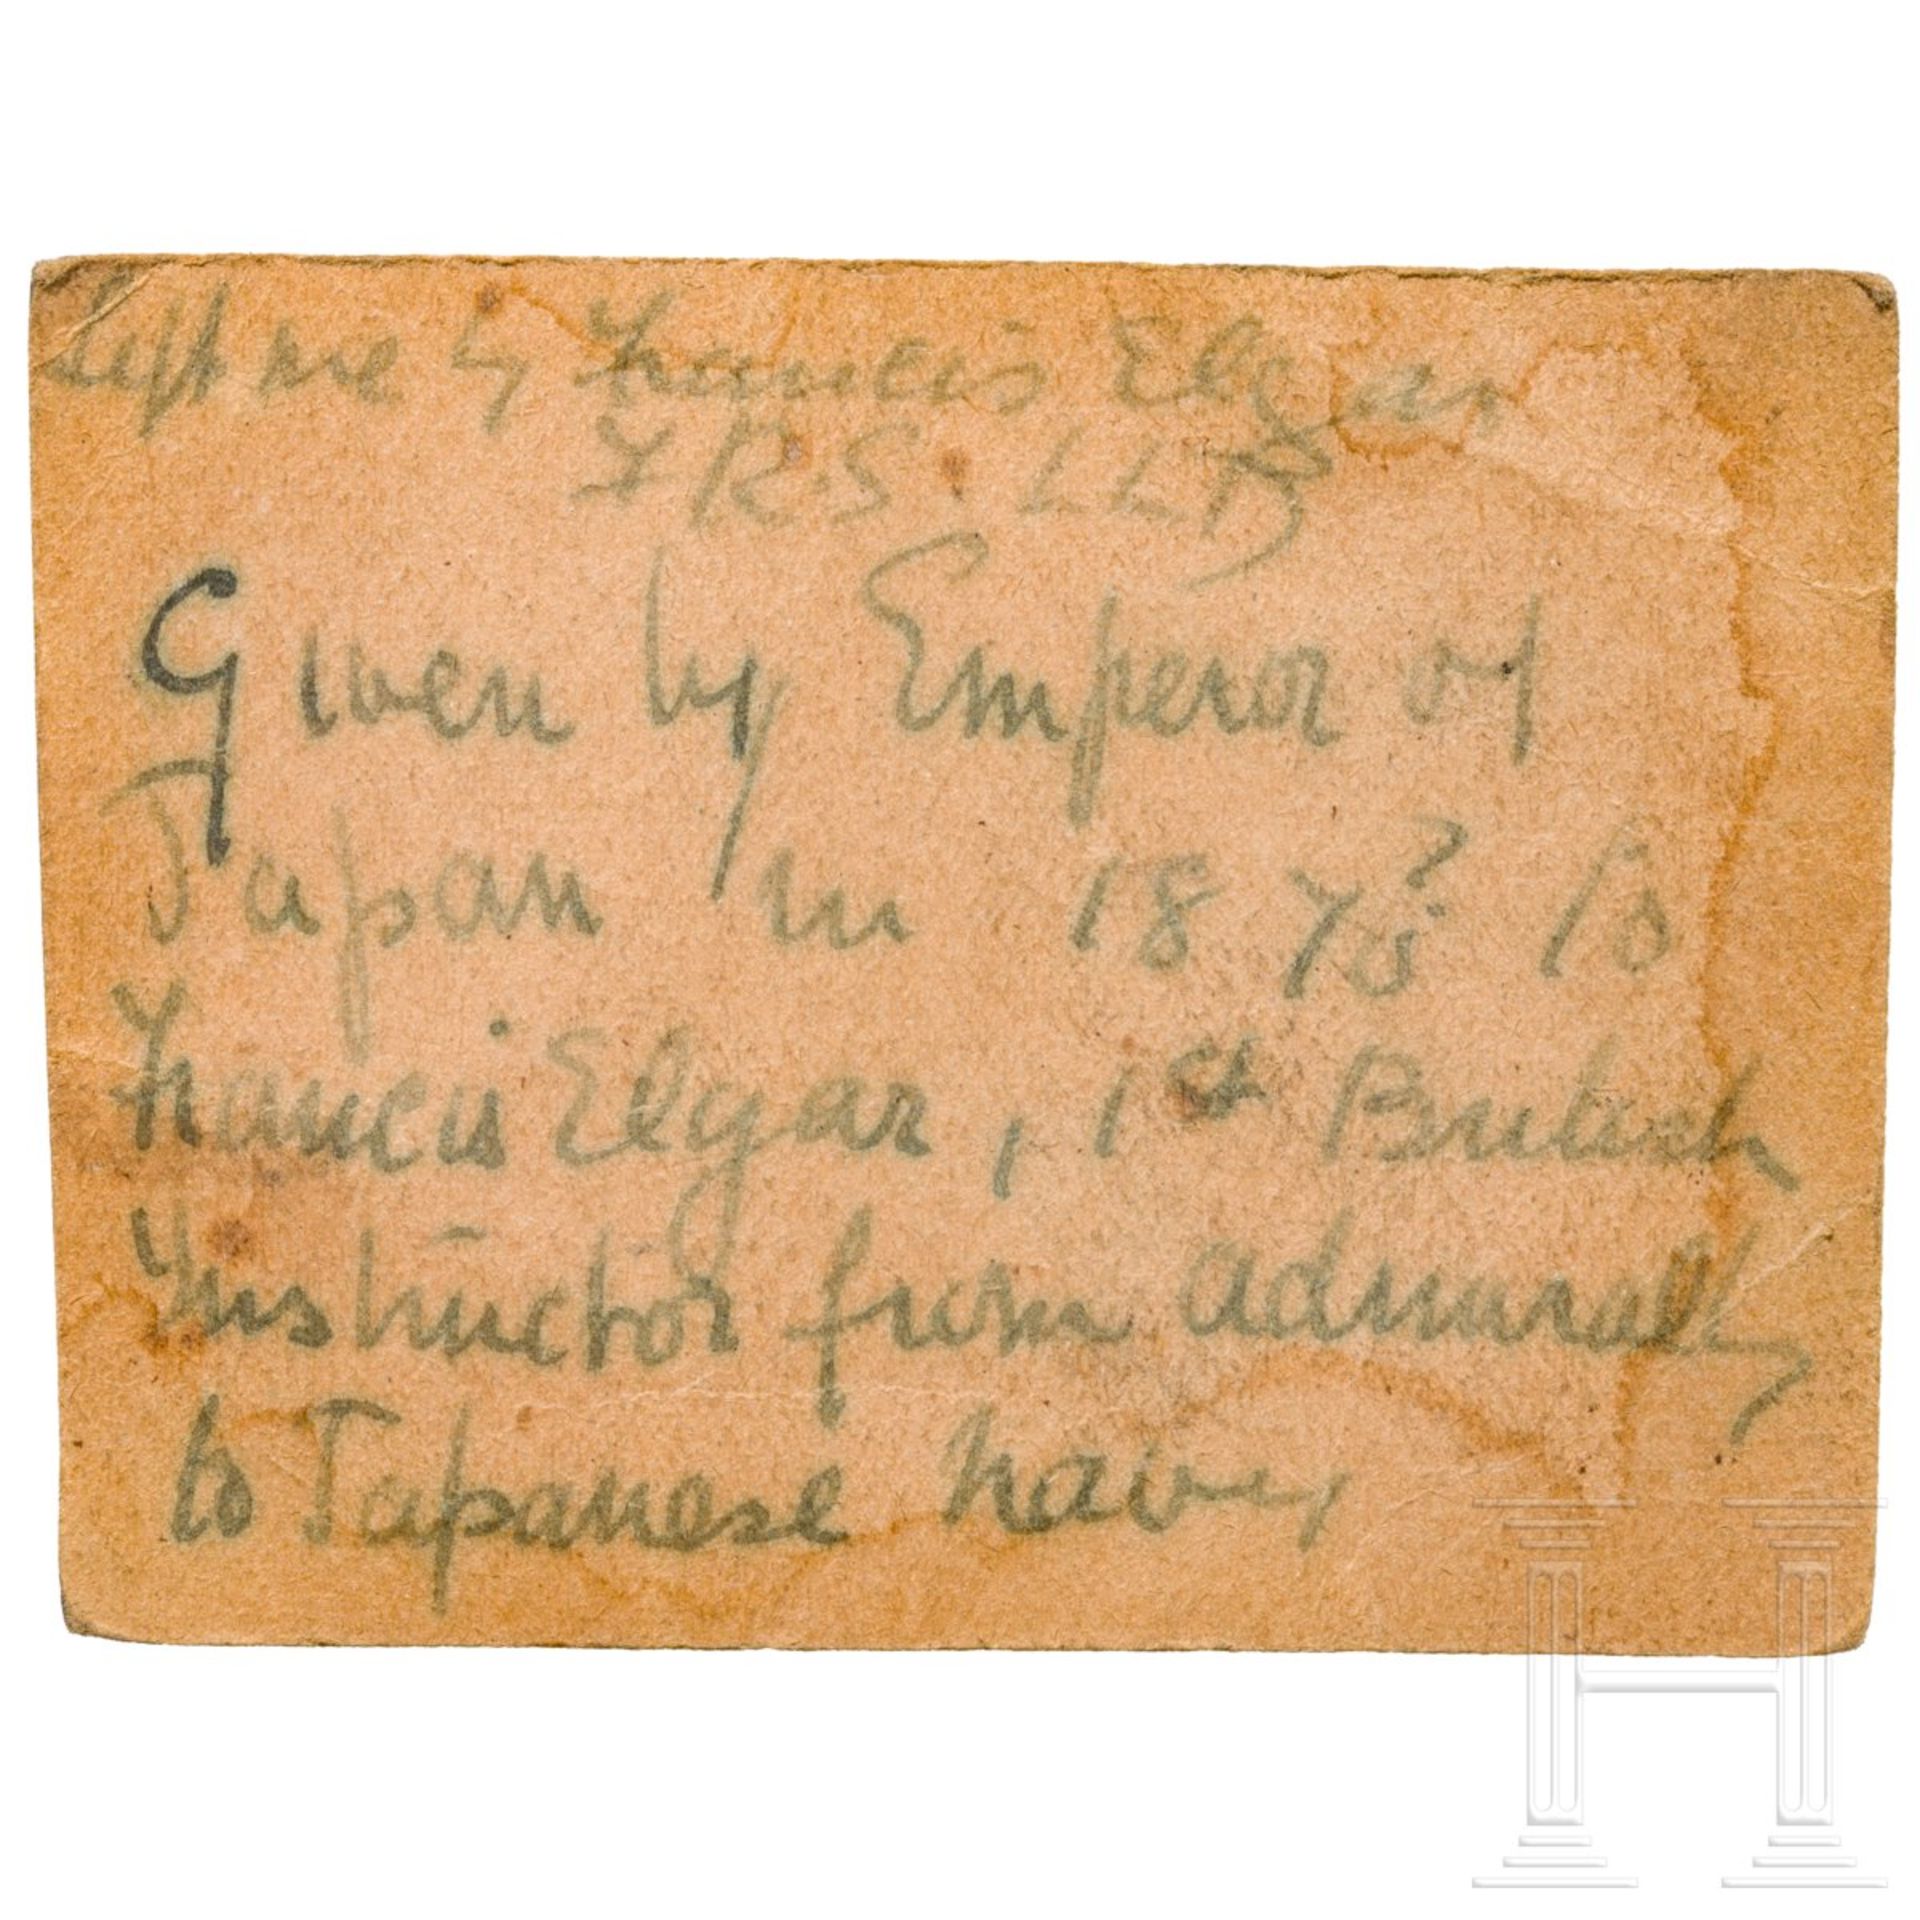 Left me by Francis Elgar
FRS. LLD
Given by Emperor of
Japan in 187 ? to
Francis Elgar, 1st British
Instructor from Admiralty
to Japanese Navy
H